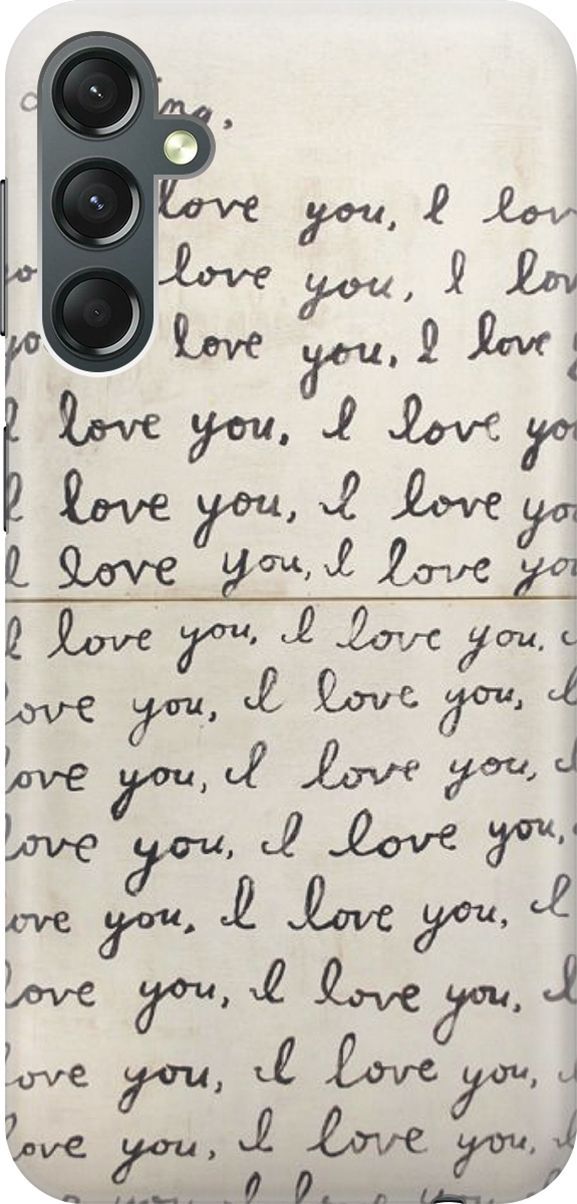 love you, I lov
yo love you, I lov
yo love you, I love y
I love you. I love yo
I love you, I love you
I love you, I love you
I love you, I love you.
ove you, I love you, I
ove you, I love you, I
love you, I love you,
ove you, I love you, I
love you, I love you, I
love you, I love you,
love you, I love you, I